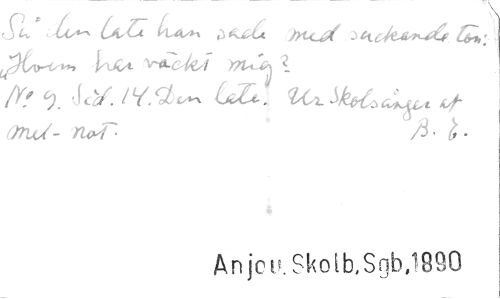 Så den late han sade med suckande ton:
"Hvem har väckt mig?
No 9. Sid. 14. Den late. Ur Skolsånger af
mel- not. B. E.
Anjou. Skolb, Sgb, 1890